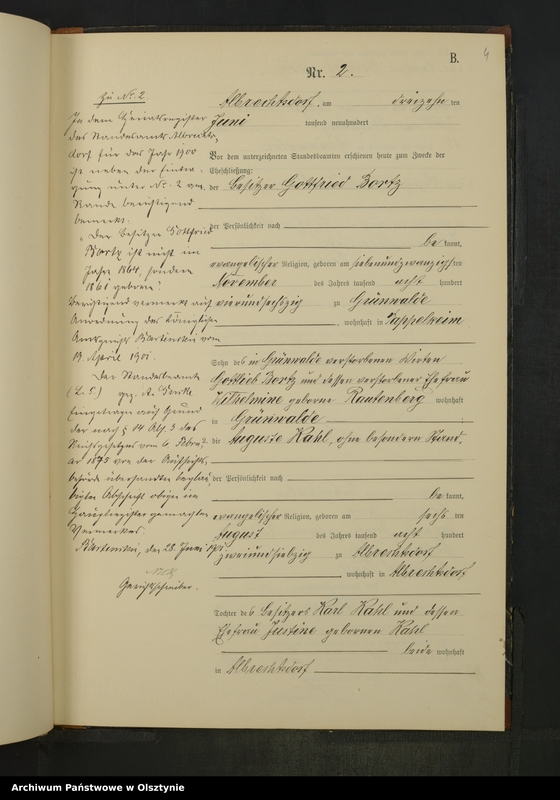 4
B.
Nr. 2.
Albrechtsdorf, am dreizehn ten
Juni tausend neunhundert
Vor dem unterzeichneten Standesbeamten erschienen heute zum Zwecke der
Eheschließung:
1. der Besitzer Gottfried Bortz
der Persönlichkeit nach
be kannt,
evangelischer Religion, geboren am siebenundzwanzigsten
November des Jahres tausend acht hundert
vierundsechszig zu Grünwalde
, wohnhaft in Pappelheim
Sohn des in Grünwalde verstorbenen Wirten
Gottlieb Bortz und dessen verstorbener Ehefrau
Wilhelmine geborne Rautenberg wohnhaft
in Grünwalde
2. die Auguste Kahl, ohne besondern Stand
der Persönlichkeit nach
be kannt,
evangelischer Religion, geboren am sechs ten
August des Jahres tausend acht hundert
zweiundsiebzig zu Albrechtsdorf
, wohnhaft in Albrechtsdorf
Tochter des Besitzers Karl Kahl und dessen
Ehefrau Justine gebornen Kahl
beide wohnhaft
in Albrechtsdorf
Zu No. 2
In dem Heiratsregister
des Standesamts Albrechts-
dorf für das Jahr 1900
ist neben der Eintra-
gung unter No. 2 am
Rande berichtigend
bemerkt:
"Der Besitzer Gottfried
Bortz ist nicht im
Jahre 1864, sondern
1861 geboren."
Berichtigend vermerkt auf
Anordnung des Königlichen
Amtsgerichts Bartenstein vom
19. April 1901.
Der Standesbeamte
(L. S.) gez.
Eingetragen auf Grund
der nach § 14 Abs. 3 des
Reichsgesetzes vom 6. Febru-
ar 1875 von der Aufsichts-
behörde übersandten beglau-
bigten Abschrift obigen im
Hauptregister gemachten
Vermerkes.
Bartenstein, den 28. Juni 1901
Gerichtsschreiber.
Archiwum Państwowe w Olsztynie